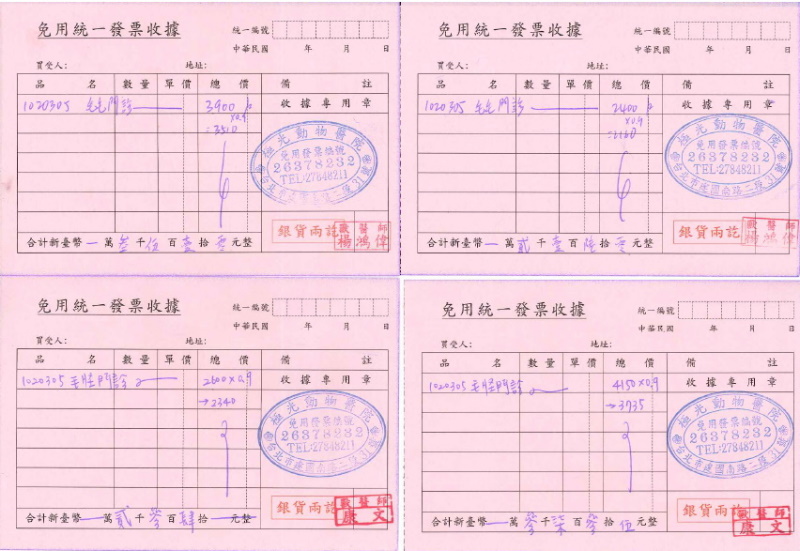 免用統一發票收據
統一編號
中華民國 年 月 日
買受人: 地址:
品 名 數量 單價 總 價 備 註
1020305 門診 3900 收據專用章
×0.9
=3510
極光動物醫院
免用發票編號
26378232
TEL:27848211
銀貨兩訖
獸醫師
楊鴻偉
合計新臺幣 萬 叁 千 伍 百 壹 拾 零 元整
免用統一發票收據
統一編號
中華民國 年 月 日
買受人: 地址:
品 名 數量 單價 總 價 備 註
1020305 門診 2400 收據專用章
×0.9
=2160
極光動物醫院
免用發票編號
26378232
TEL:27848211
台北市建國南路一段
銀貨兩訖
獸醫師
楊鴻偉
合計新臺幣 萬 貳 千 壹 百 陸 拾 零 元整
免用統一發票收據
統一編號
中華民國 年 月 日
買受人: 地址:
品 名 數量 單價 總 價 備 註
1020305 毛怪門診 2600×0.9 收據專用章
→2340
極光動物醫院
免用發票編號
26378232
TEL:27848211
銀貨兩訖
獸醫師
康文
合計新臺幣 萬 貳 千 參 百 肆 拾 元整
免用統一發票收據
統一編號
中華民國 年 月 日
買受人: 地址:
品 名 數量 單價 總 價 備 註
1020305 毛怪門診 4150×0.9 收據專用章
→3735
極光動物醫院
免用發票編號
26378232
TEL:27848211
銀貨兩訖
獸醫師
康文
合計新臺幣 萬 參 千 柒 百 參 拾 伍 元整